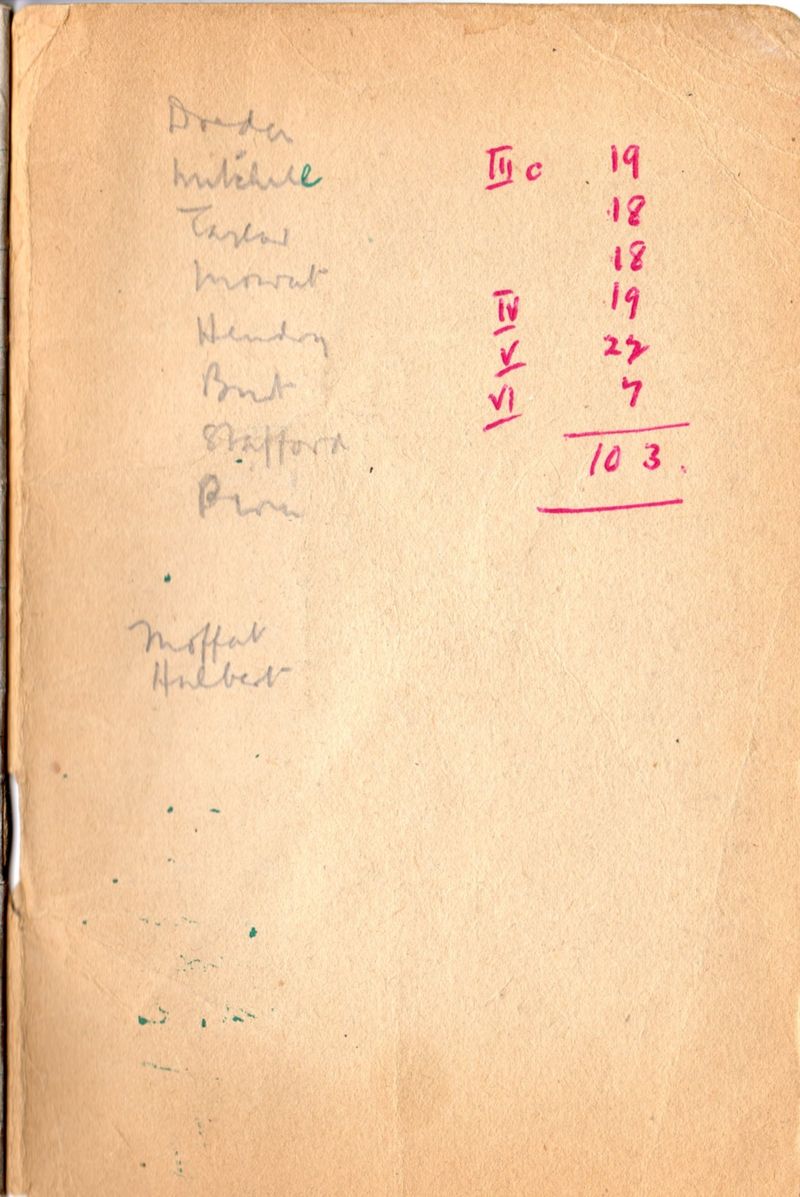 Mitchell
Taylor
Mowat
Hendry
Burt
Stafford
Moffat
Halbert
III c 19
18
18
IV 19
V 22
VI 7
103.